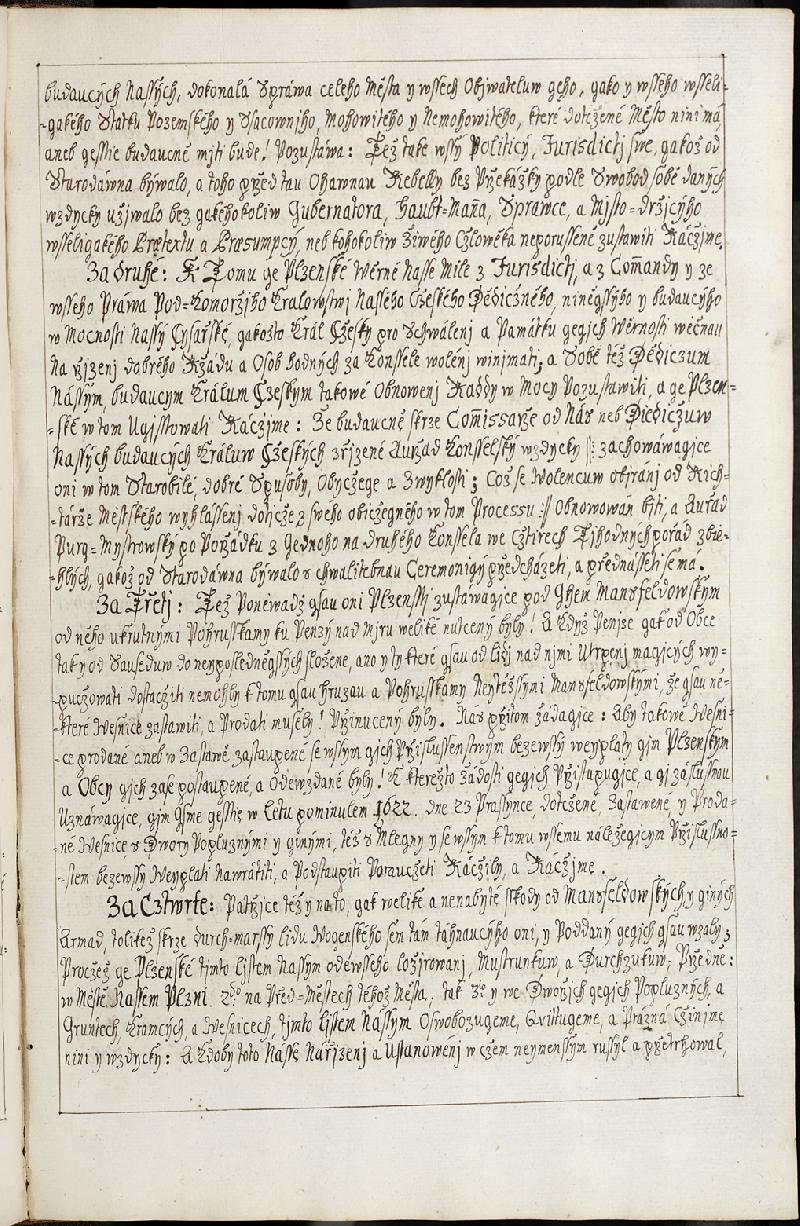 budaucých Nassých, dokonalá Spráwa celého Města y wssech Obywateluw geho, gako y wsseho wsseli-
-gakého Statku Pozemského y Psacownjho, Mohowitého y Nemohowitého, které dotčené Město nini má
aneb gesstie budaucně mjti bude! Pozustáwa: Těž také wssý Politicý, Jurisdictj swé, gakož od
Starodáwna býwalo, a toho před tau Ohawnau Rebelly bez Překážky podle Swobod sobě daných
wzdycky užjwalo bez gakéhokoliw Gubernatora, Haubt=Maňa, Spráwce, a Mjsto=držjcýho
wsseligakého Prætextu a Præsumpcý, neb kohokoliw žiwého Cžlowěka neporussené zustawiti Ráčzjme.
Za druhé: K Tomu ge Plzenské Wěrné Nasse Milé z Jurisdictj, a z Com̃andy y ze
wsseho Práwa Pod=Komoržjho Kralowstwj Nassého Cžeského Dědičzného, niněgssýho y budaucýho
w Mocnosti Nassý Cýsařské, gakožto Král Cžeský pro Schwálenj a Památku gegich Wěrnosti wěčnau
Na zřjzenj dobrého Ržádu a Osob hodných za Konssele wolenj winjmati, a Sobě též Dědiczum
Nássým, budaucým Králum Cžeským takowé Obnowenj Raddy w Mocy Pozustawiti, a ge Plzen=
=ské w tom Ugisstowati Ráčzjme: Že budaucně skrze Com̃issarže od Nás neb Diedičzuw
Nassých budaucých Králuw Cžeských zřjzené Auržad Konsselský wzdycky |: zachowáwagjce
oni w tom Starobilé, dobré Spusoby, Obyčzege a Zwyklosti; Což se Wolencum otjránj od Rich=
=tárže Městského wyhlássenj dotjcže z swého običzegného w tom Processu :| Obnowowán býti, a Auřad
Purg=Mystrowský po Pořádku z Gednoho na druhého Konssela we Cžtirech Týhodných pořád zbie-
=hlých, gakož od Starodáwna býwalo s chwalitebnau Ceremonigý předcházeti, a přednásseti se má.
Za Třetj: Též Poniewadž gsau oni Plzenssj zustáwagjce pod Ghem Mansfeldowským
od něho ukrutnými Pohruzkamy ku Penzý nad Mjru weliké nucený byly! A Když Penjze gak od Obce
tak y od Sausedůw do neyposledněgssých složené, ano y ty které gsau od lidj nad njmi Utrpenj magjcých wy-
-pučzowati dostačziti nemohly k tomu gsau hruzau a Pohruzkamy Neytěžssými Mansfeldowskými, že gsau ně-
-které Wesnice zastawiti, a Prodati musely! Přinuceny byly. Nas přitom žádagice: Aby takowé Wesni-
-ce prodané aneb w Zástawě zastaupené se wssým gich Přislussenstwým bezewssý weyplaty gim Plzenským
a Obcy gich zase postaupené, a Odewzdané byly! K kteréžto žádosti gegich Přistupugjce, a gi za slussnou
Uznáwagjce, gim Gsme gesstie w létu pominulém 1622. dne 23 Prasynce, dotčzené, Zástawené y Proda-
-né Wesnice s Dwory Popluznými y ginými, též s Mlegny y se wssým k tomu wssemu náležegjcým Přislussno-
-stem bezewssý Weyplati Nawrátiti, a Postaupiti Porauczeti Ráčžily, a Ráčžjme.
Za Cztwrté: Patřjce též y na to, gak weliké a nenabyté sskody od Mansfeldowských, y giných
Armad, tolitéž skrze durch=marssý lidu Wogenského sem tam táhnaucýho oni, y Poddaný gegich gsau wzaly;
Pročzež ge Plzenské tjmto listem Nassým odewsseho ložjrowanj, Mustrunkuw, a Durchzukuw, Předně:
w Městě Nassem Plzni. 2dé na Před=Městech téhož Města, tak 3é y we Dwořich gegich Popluzných, a
Gruntech, Kramcých, a Wesnicech, tjmto listem Nassým Oswobozugeme, Qvittugeme, a Prázna Cžinjme
nini y wzdycky: A Kdoby toto Násse Nařjzenj a Ustanowenj w czem neymenssým russyl a přetrhowal,